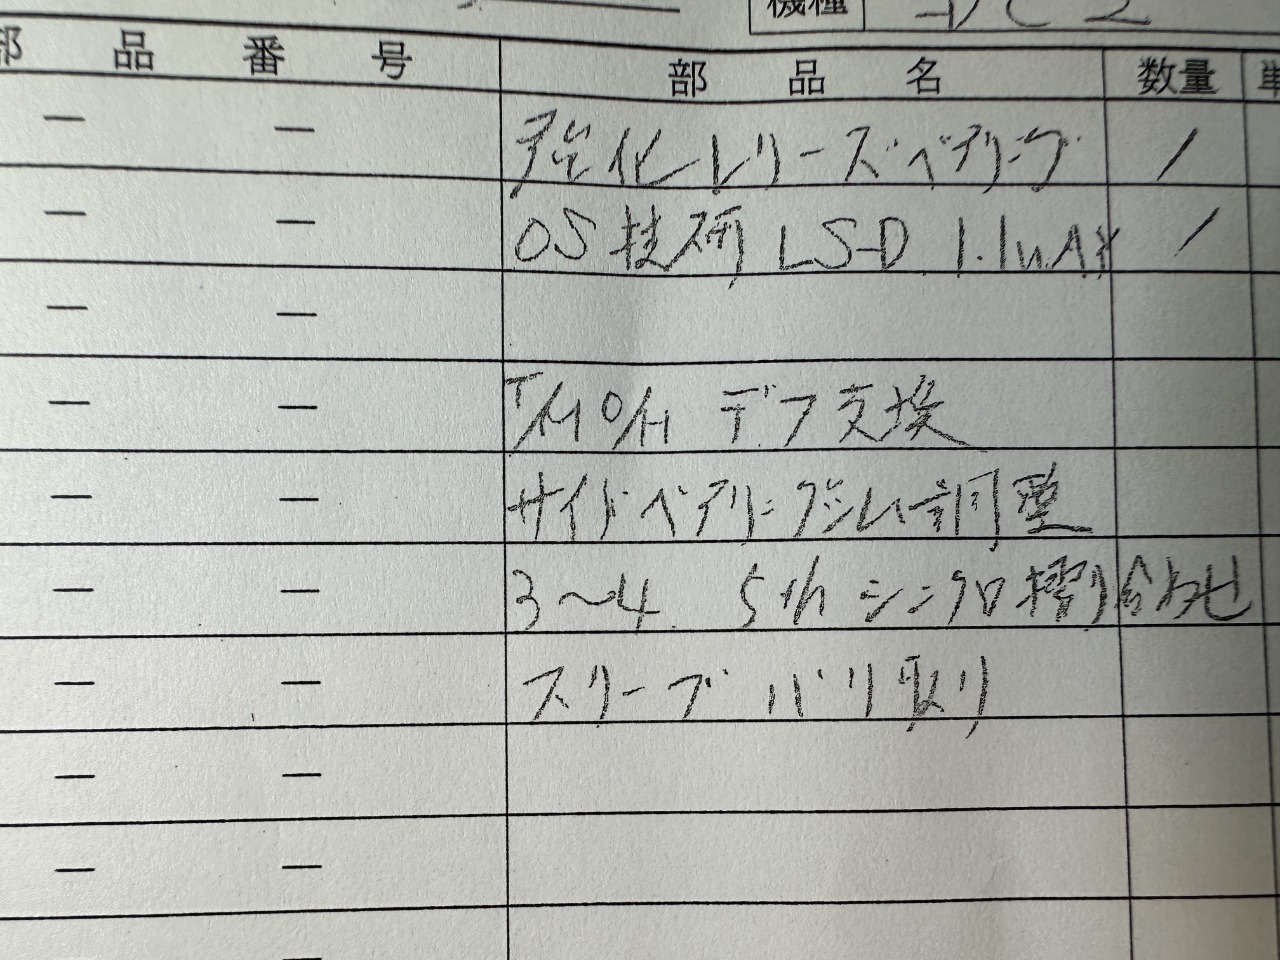 機種
部品番号 部品名 数量
— — 強化レリーズベアリング 1
— — OS技研 LS-D 1.1way 1
— —
— — T/M O/H デフ交換
— — サイドベアリングシム調整
— — 3〜4 5th シンクロ摺り合わせ
— — スリーブ バリ取り
— —
— —